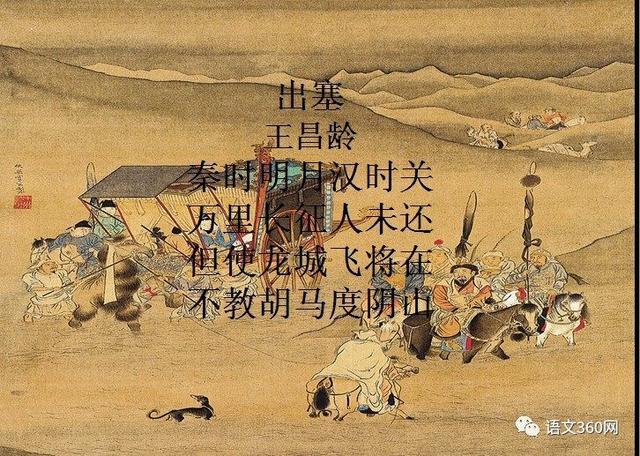 出塞
王昌龄
秦时明月汉时关
万里长征人未还
但使龙城飞将在
不教胡马度阴山
语文360网